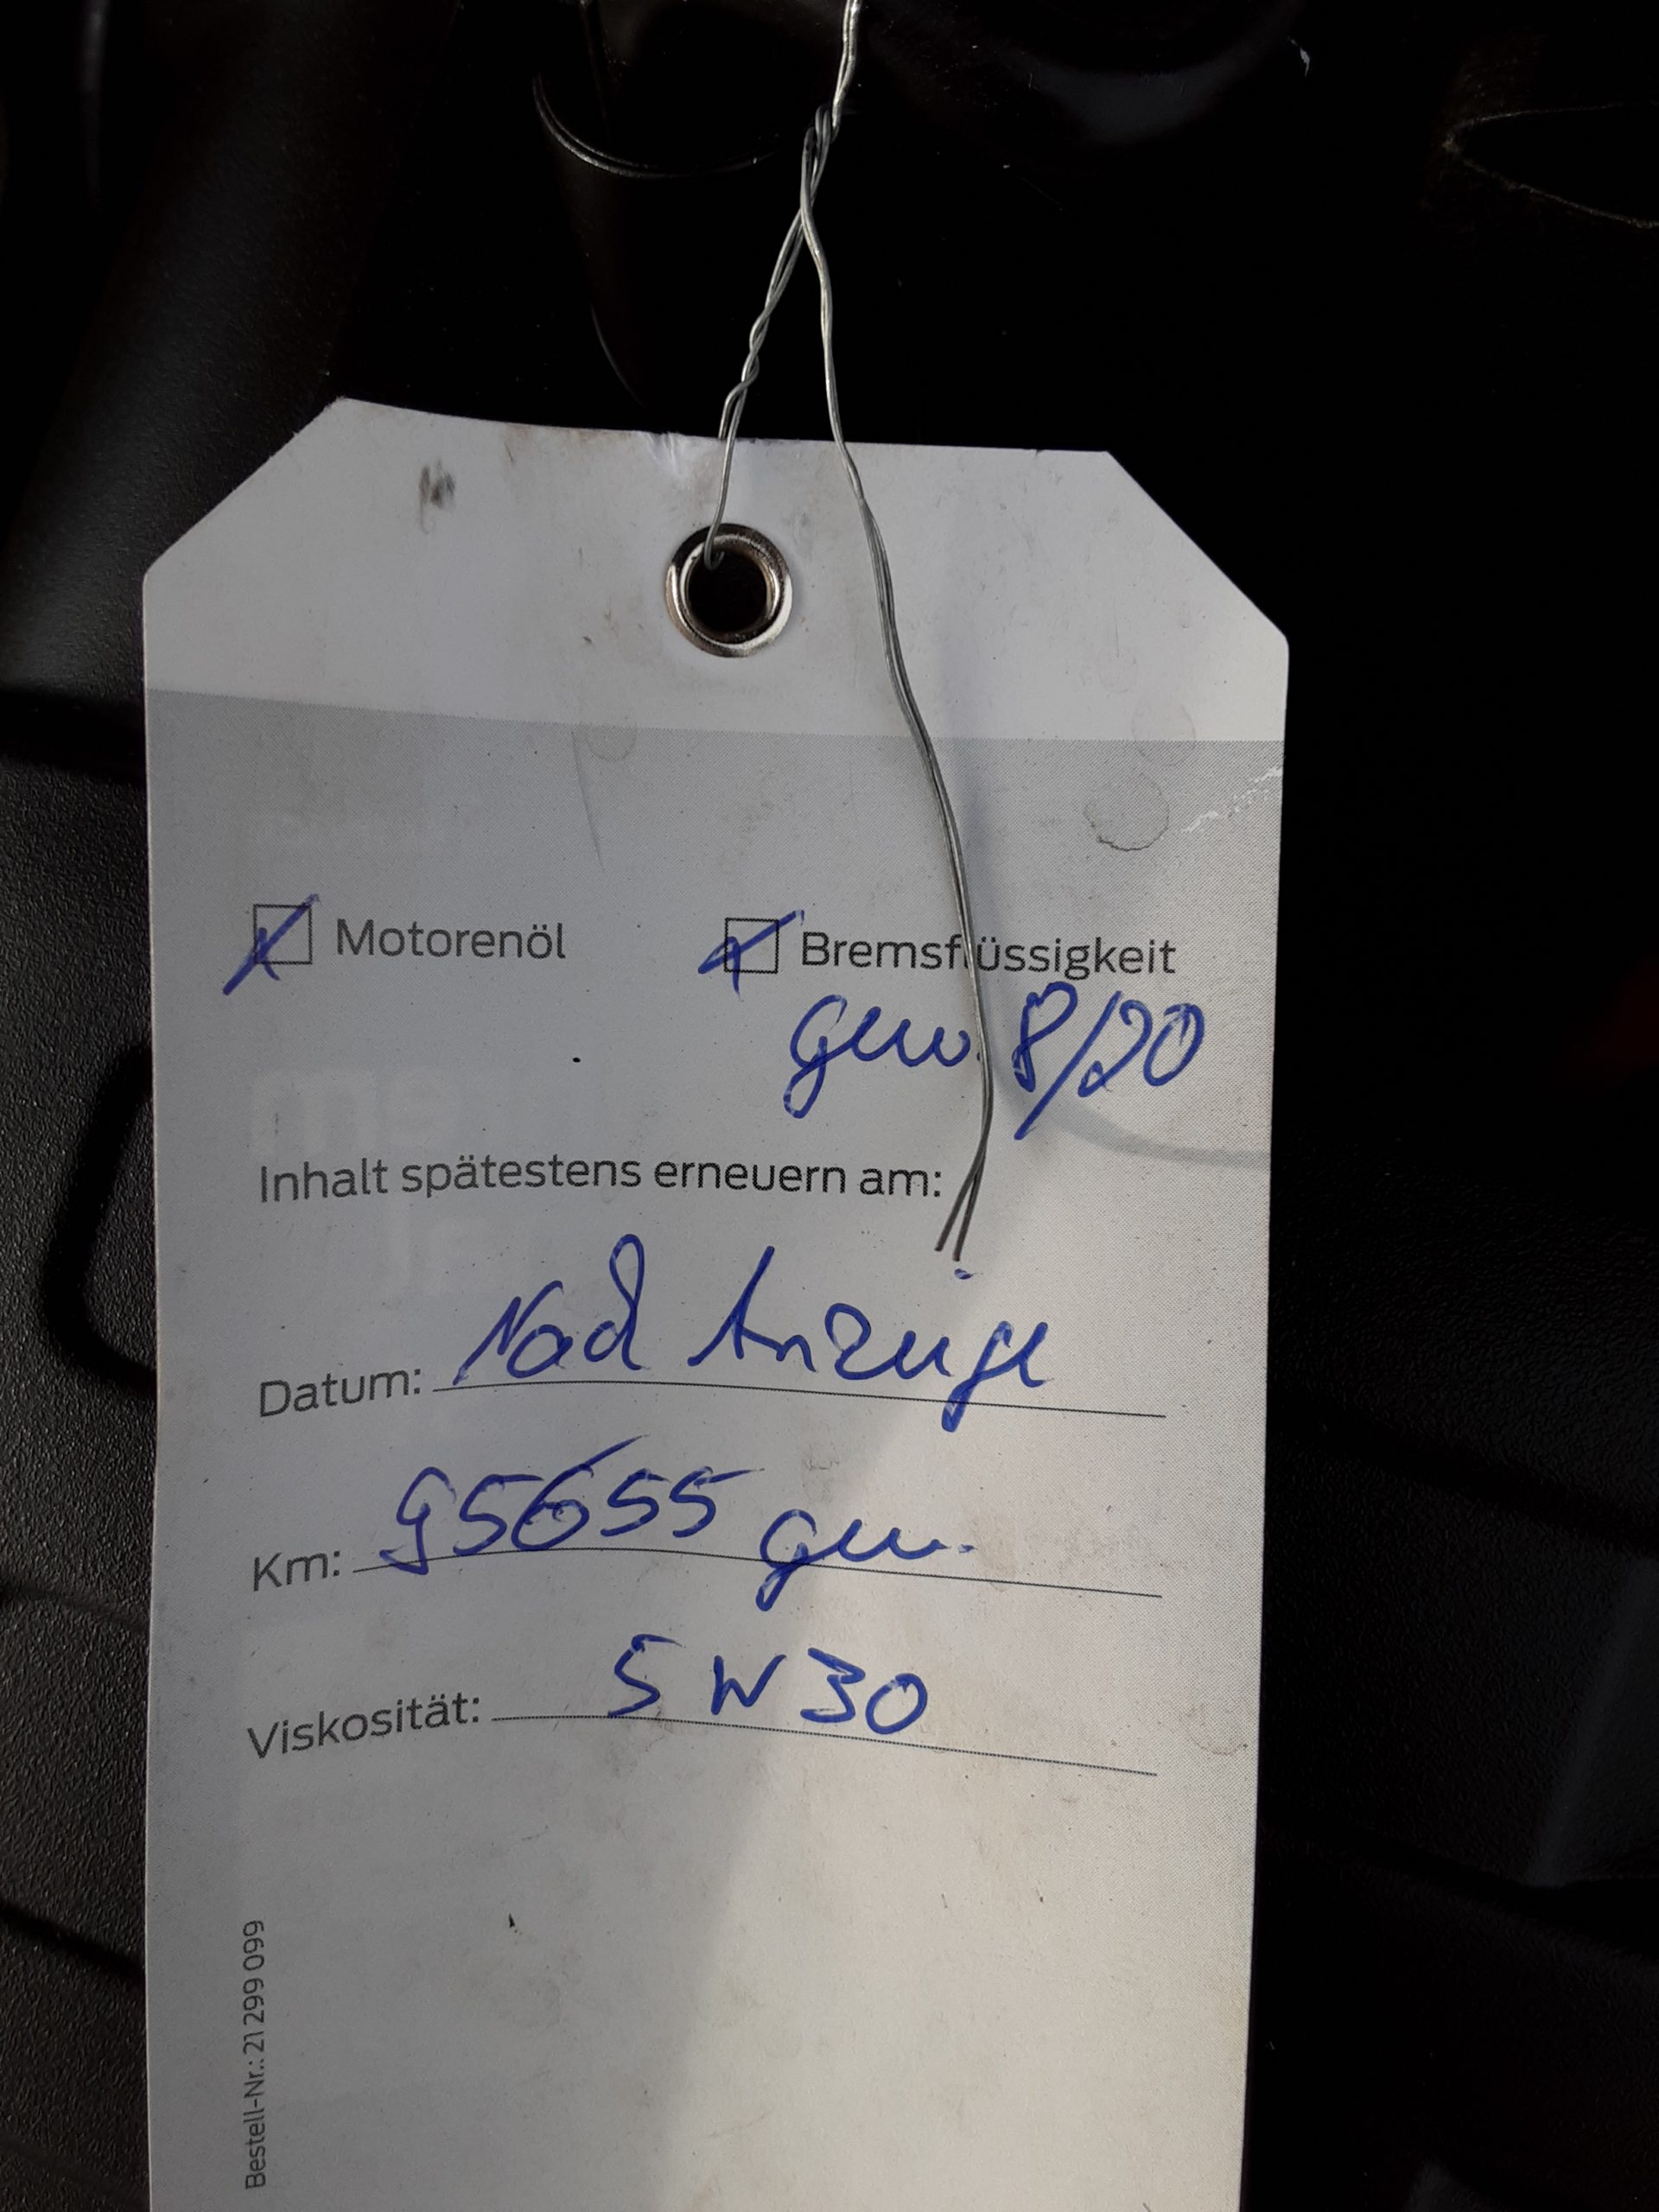 Motorenöl Bremsflüssigkeit
gew. 8/20
Inhalt spätestens erneuern am:
Datum: Nach Anzeige
Km: 95655 gew.
Viskosität: 5W30
Bestell-Nr.: 21 299 099